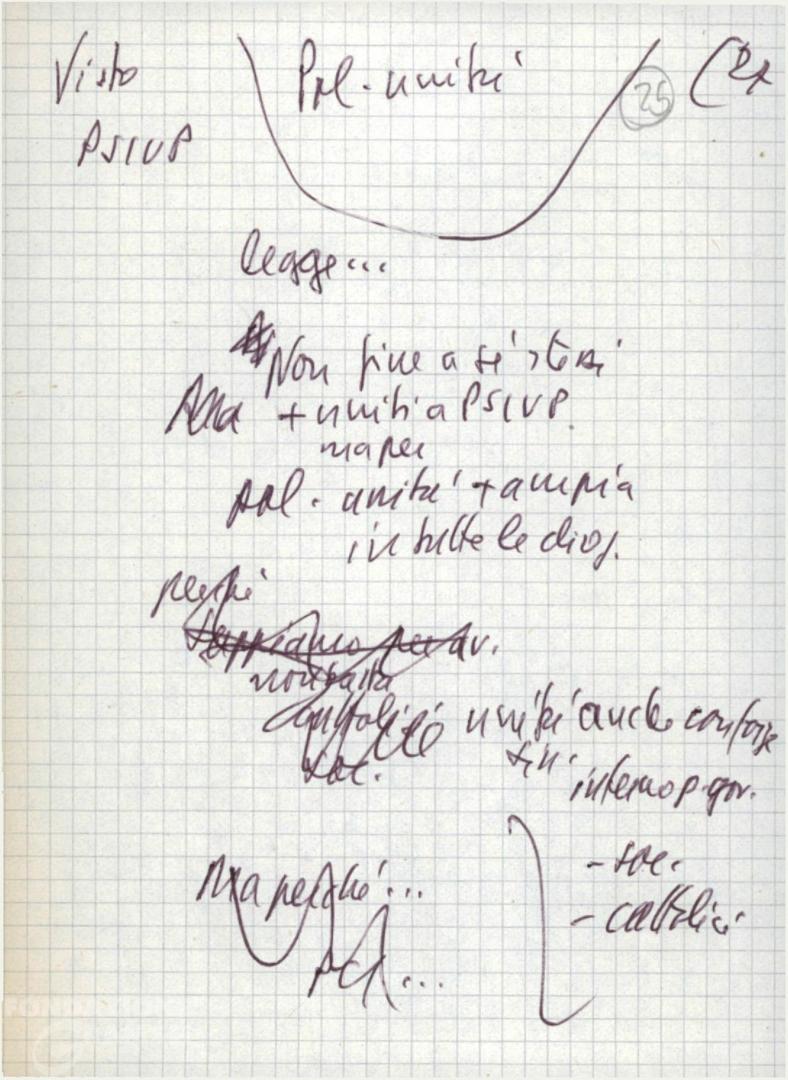 Visto
PSIUP
Pol. unità
25
legge...
Non fine a sé stessi
+ uniti a PSIUP.
ma per
pol. unità + ampia
in tutte le direz.
perché
Sappiamo
non basta
cattolici
soc.
unità anche con forze
sin.
interno p. gov.
- soc.
- cattolici
Ma perché...
PCI...